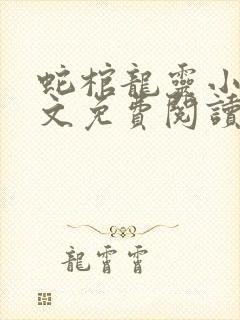 蛇棺龍靈小
文免費閱讀
龍霄霄